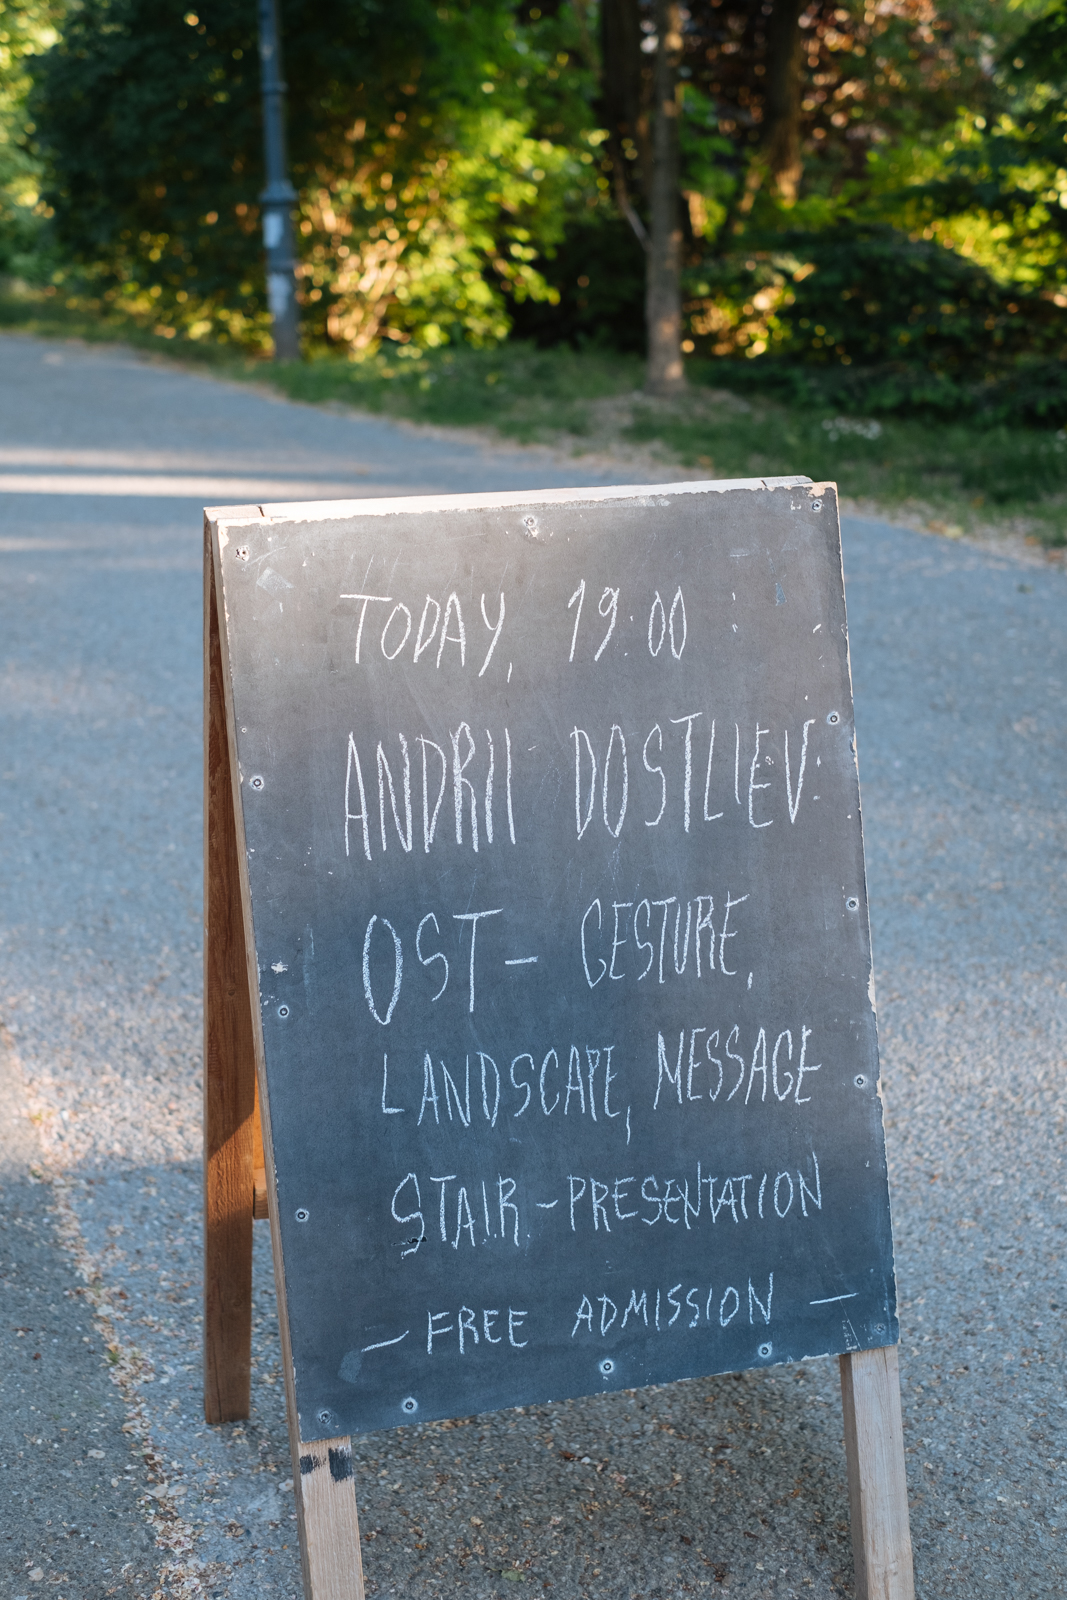 TODAY, 19:00
ANDRII DOSTLIEV
OST- GESTURE,
LANDSCAPE, MESSAGE
STAIR-PRESENTATION
— FREE ADMISSION —